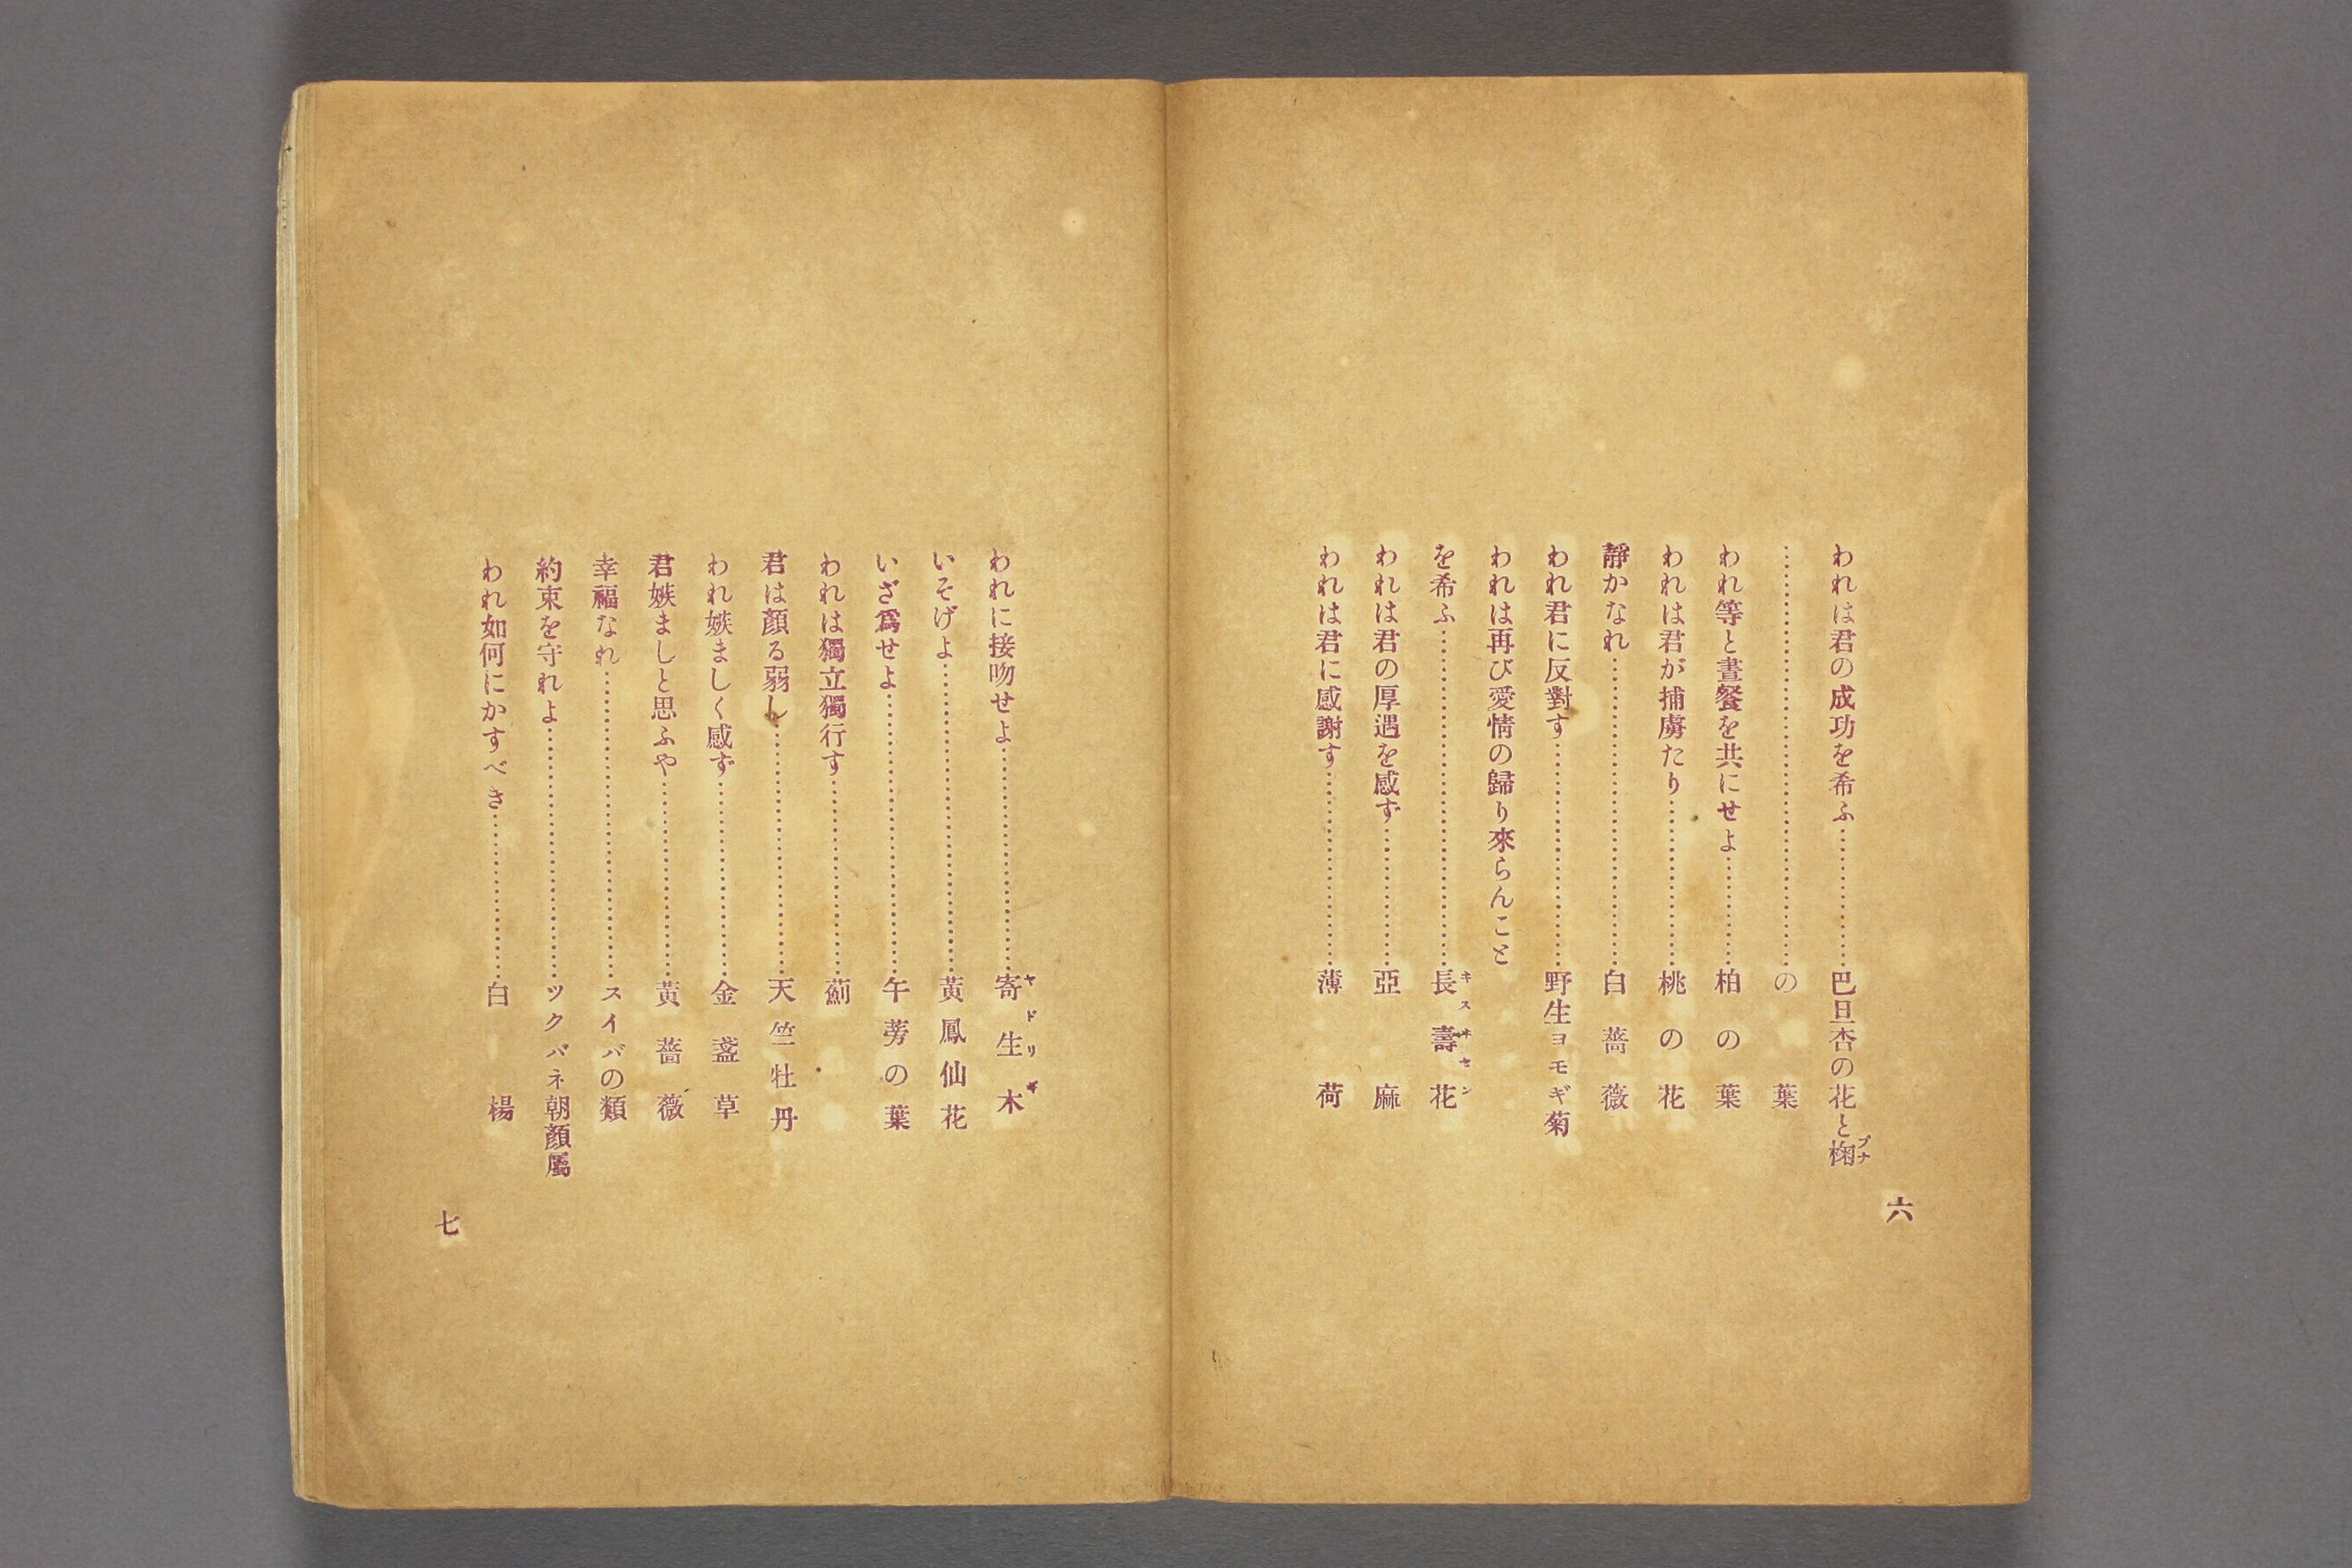 われは君の成功を希ふ……………巴旦杏の花と椈ブナ
………………………………………の葉
われ等と晝餐を共にせよ…………柏の葉
われは君が捕虜たり………………桃の花
靜かなれ……………………………白薔薇
われ君に反對す……………………野生ヨモギ菊
われは再び愛情の歸り來らんこと
を希ふ………………………………長壽花キズキセン
われは君の厚遇を感ず……………亞麻
われは君に感謝す…………………薄荷
六
われに接吻せよ……………………寄生木ヤドリギ
いそげよ……………………………黃鳳仙花
いざ爲せよ…………………………午蒡の葉
われは獨立獨行す…………………薊
君は顏る弱し………………………天竺牡丹
われ嫉ましく感ず…………………金盞草
君嫉ましと思ふや…………………黃薔薇
幸福なれ……………………………スイバの類
約束を守れよ………………………ツクバネ朝顏屬
われ如何にかすべき………………白楊
七